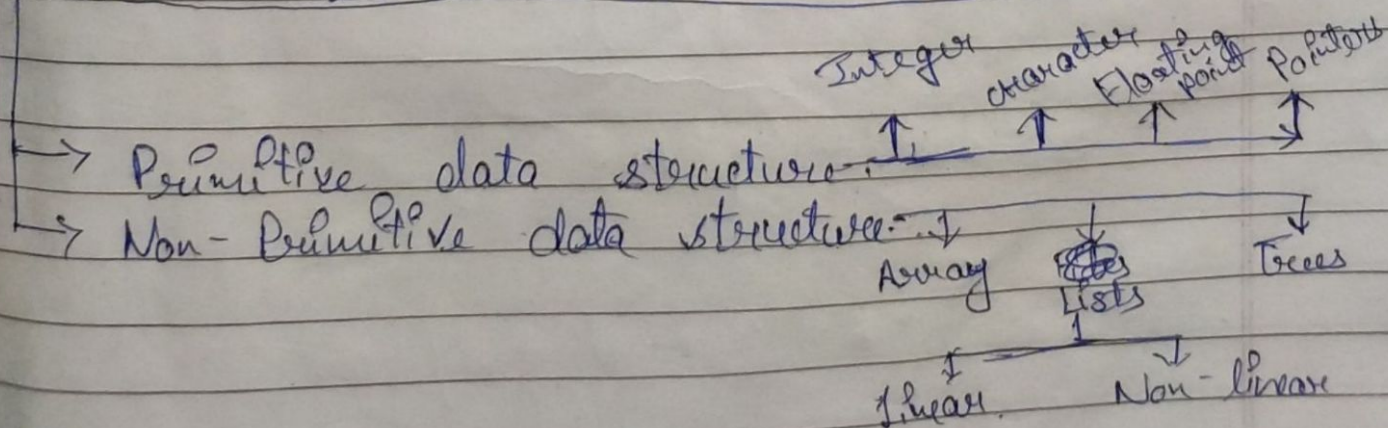 Integer character Floating point Pointers
→ Primitive data structure:-
→ Non-Primitive data structure:-
Array Lists Trees
linear Non-linear